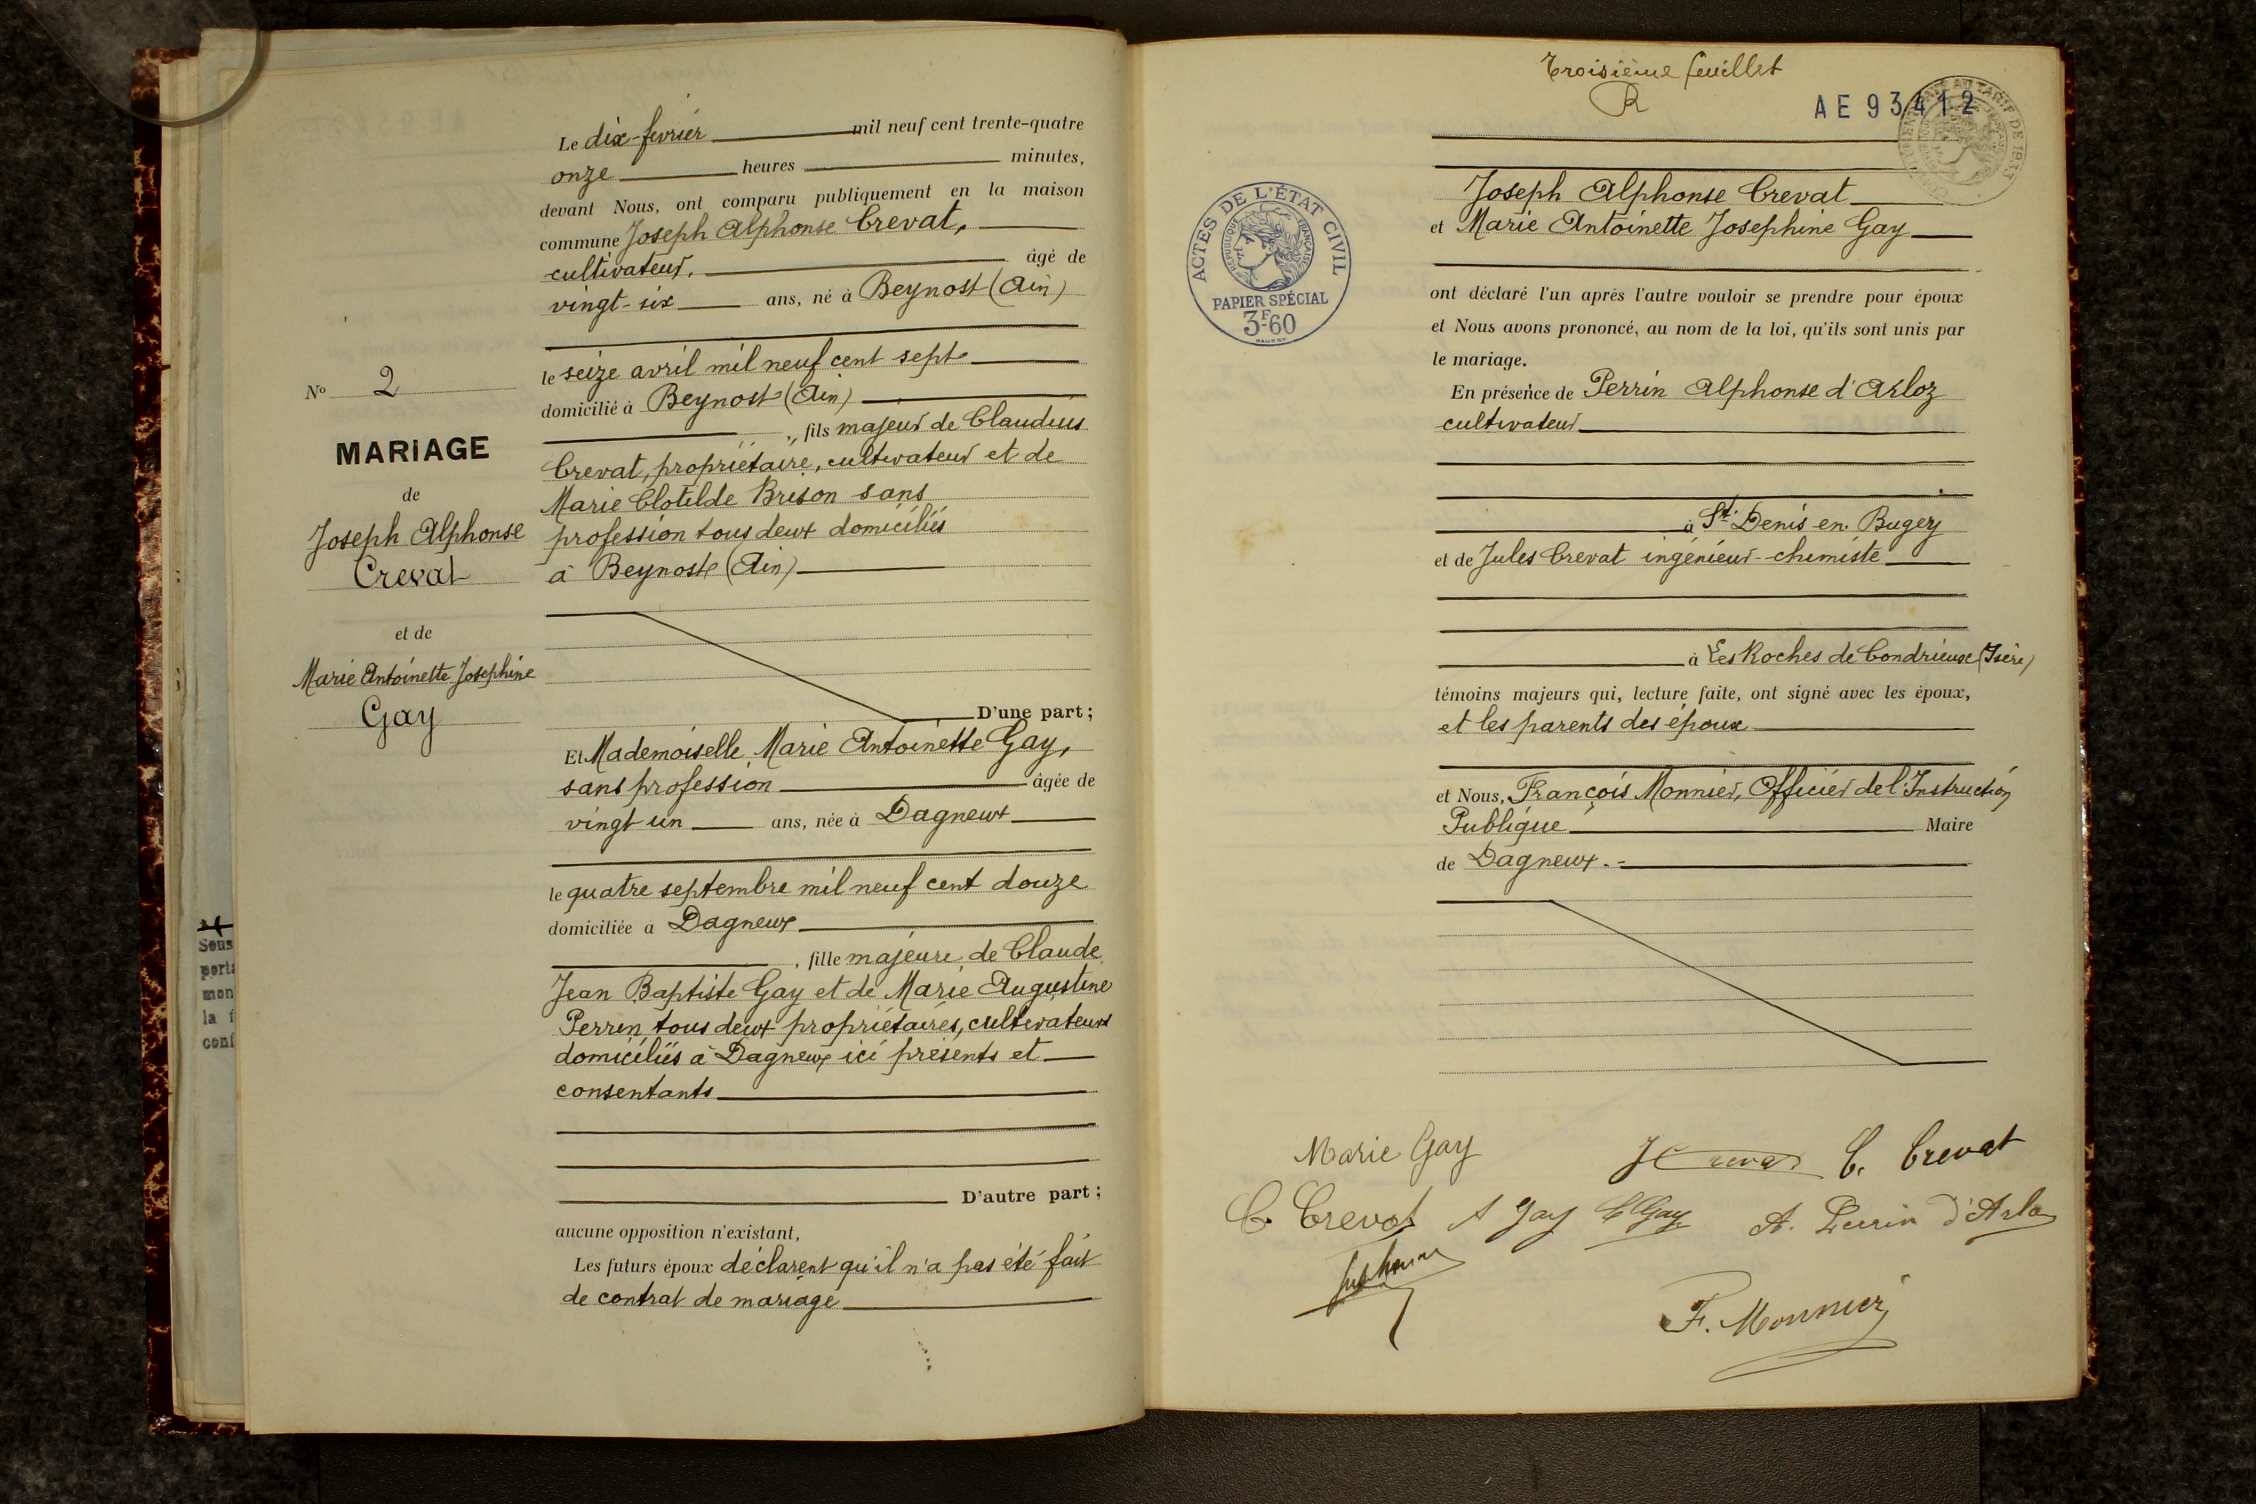 Le dix février mil neuf cent trente-quatre
onze heures minutes,
devant Nous, ont comparu publiquement en la maison
commune Joseph Alphonse Crevat,
cultivateur, âgé de
vingt-six ans, né à Beynost (Ain)
le seize avril mil neuf cent sept
domicilié à Beynost (Ain)
, fils majeur de Claudius
Crevat, propriétaire, cultivateur et de
Marie Clotilde Brison sans
profession tous deux domiciliés
à Beynost (Ain)
D'une part;
No 2
MARIAGE
de
Joseph Alphonse
Crevat
et de
Marie Antoinette Josephine
Gay
Et Mademoiselle Marie Antoinette Gay,
sans profession âgée de
vingt un ans, née à Dagneux
le quatre septembre mil neuf cent douze
domiciliée à Dagneux
, fille majeure de Claude
Jean Baptiste Gay et de Marie Augustine
Perrin tous deux propriétaires, cultivateurs
domiciliés à Dagneux ici présents et
consentants
D'autre part;
aucune opposition n'existant,
Les futurs époux déclarent qu'il n'a pas été fait
de contrat de mariage
Sous
mon
la
conf
Troisième feuillet
R
AE 93412
AU TARIF DE 1933
ACTES DE L'ÉTAT CIVIL
RÉPUBLIQUE FRANÇAISE
PAPIER SPÉCIAL
3F60
Joseph Alphonse Crevat
et Marie Antoinette Josephine Gay
ont déclaré l'un après l'autre vouloir se prendre pour époux
et Nous avons prononcé, au nom de la loi, qu'ils sont unis par
le mariage.
En présence de Perrin Alphonse d'Arloz
cultivateur
à St Denis en Bugey
et de Jules Crevat ingénieur-chimiste
à Les Roches de Condrieux (Isère)
témoins majeurs qui, lecture faite, ont signé avec les époux,
et les parents des époux
et Nous, François Monnier, Officier de l'Instruction
Publique Maire
de Dagneux.
Marie Gay J Crevat C. Crevat
C. Crevat A Gay C Gay A. Perrin d'Arloz
F. Monnier